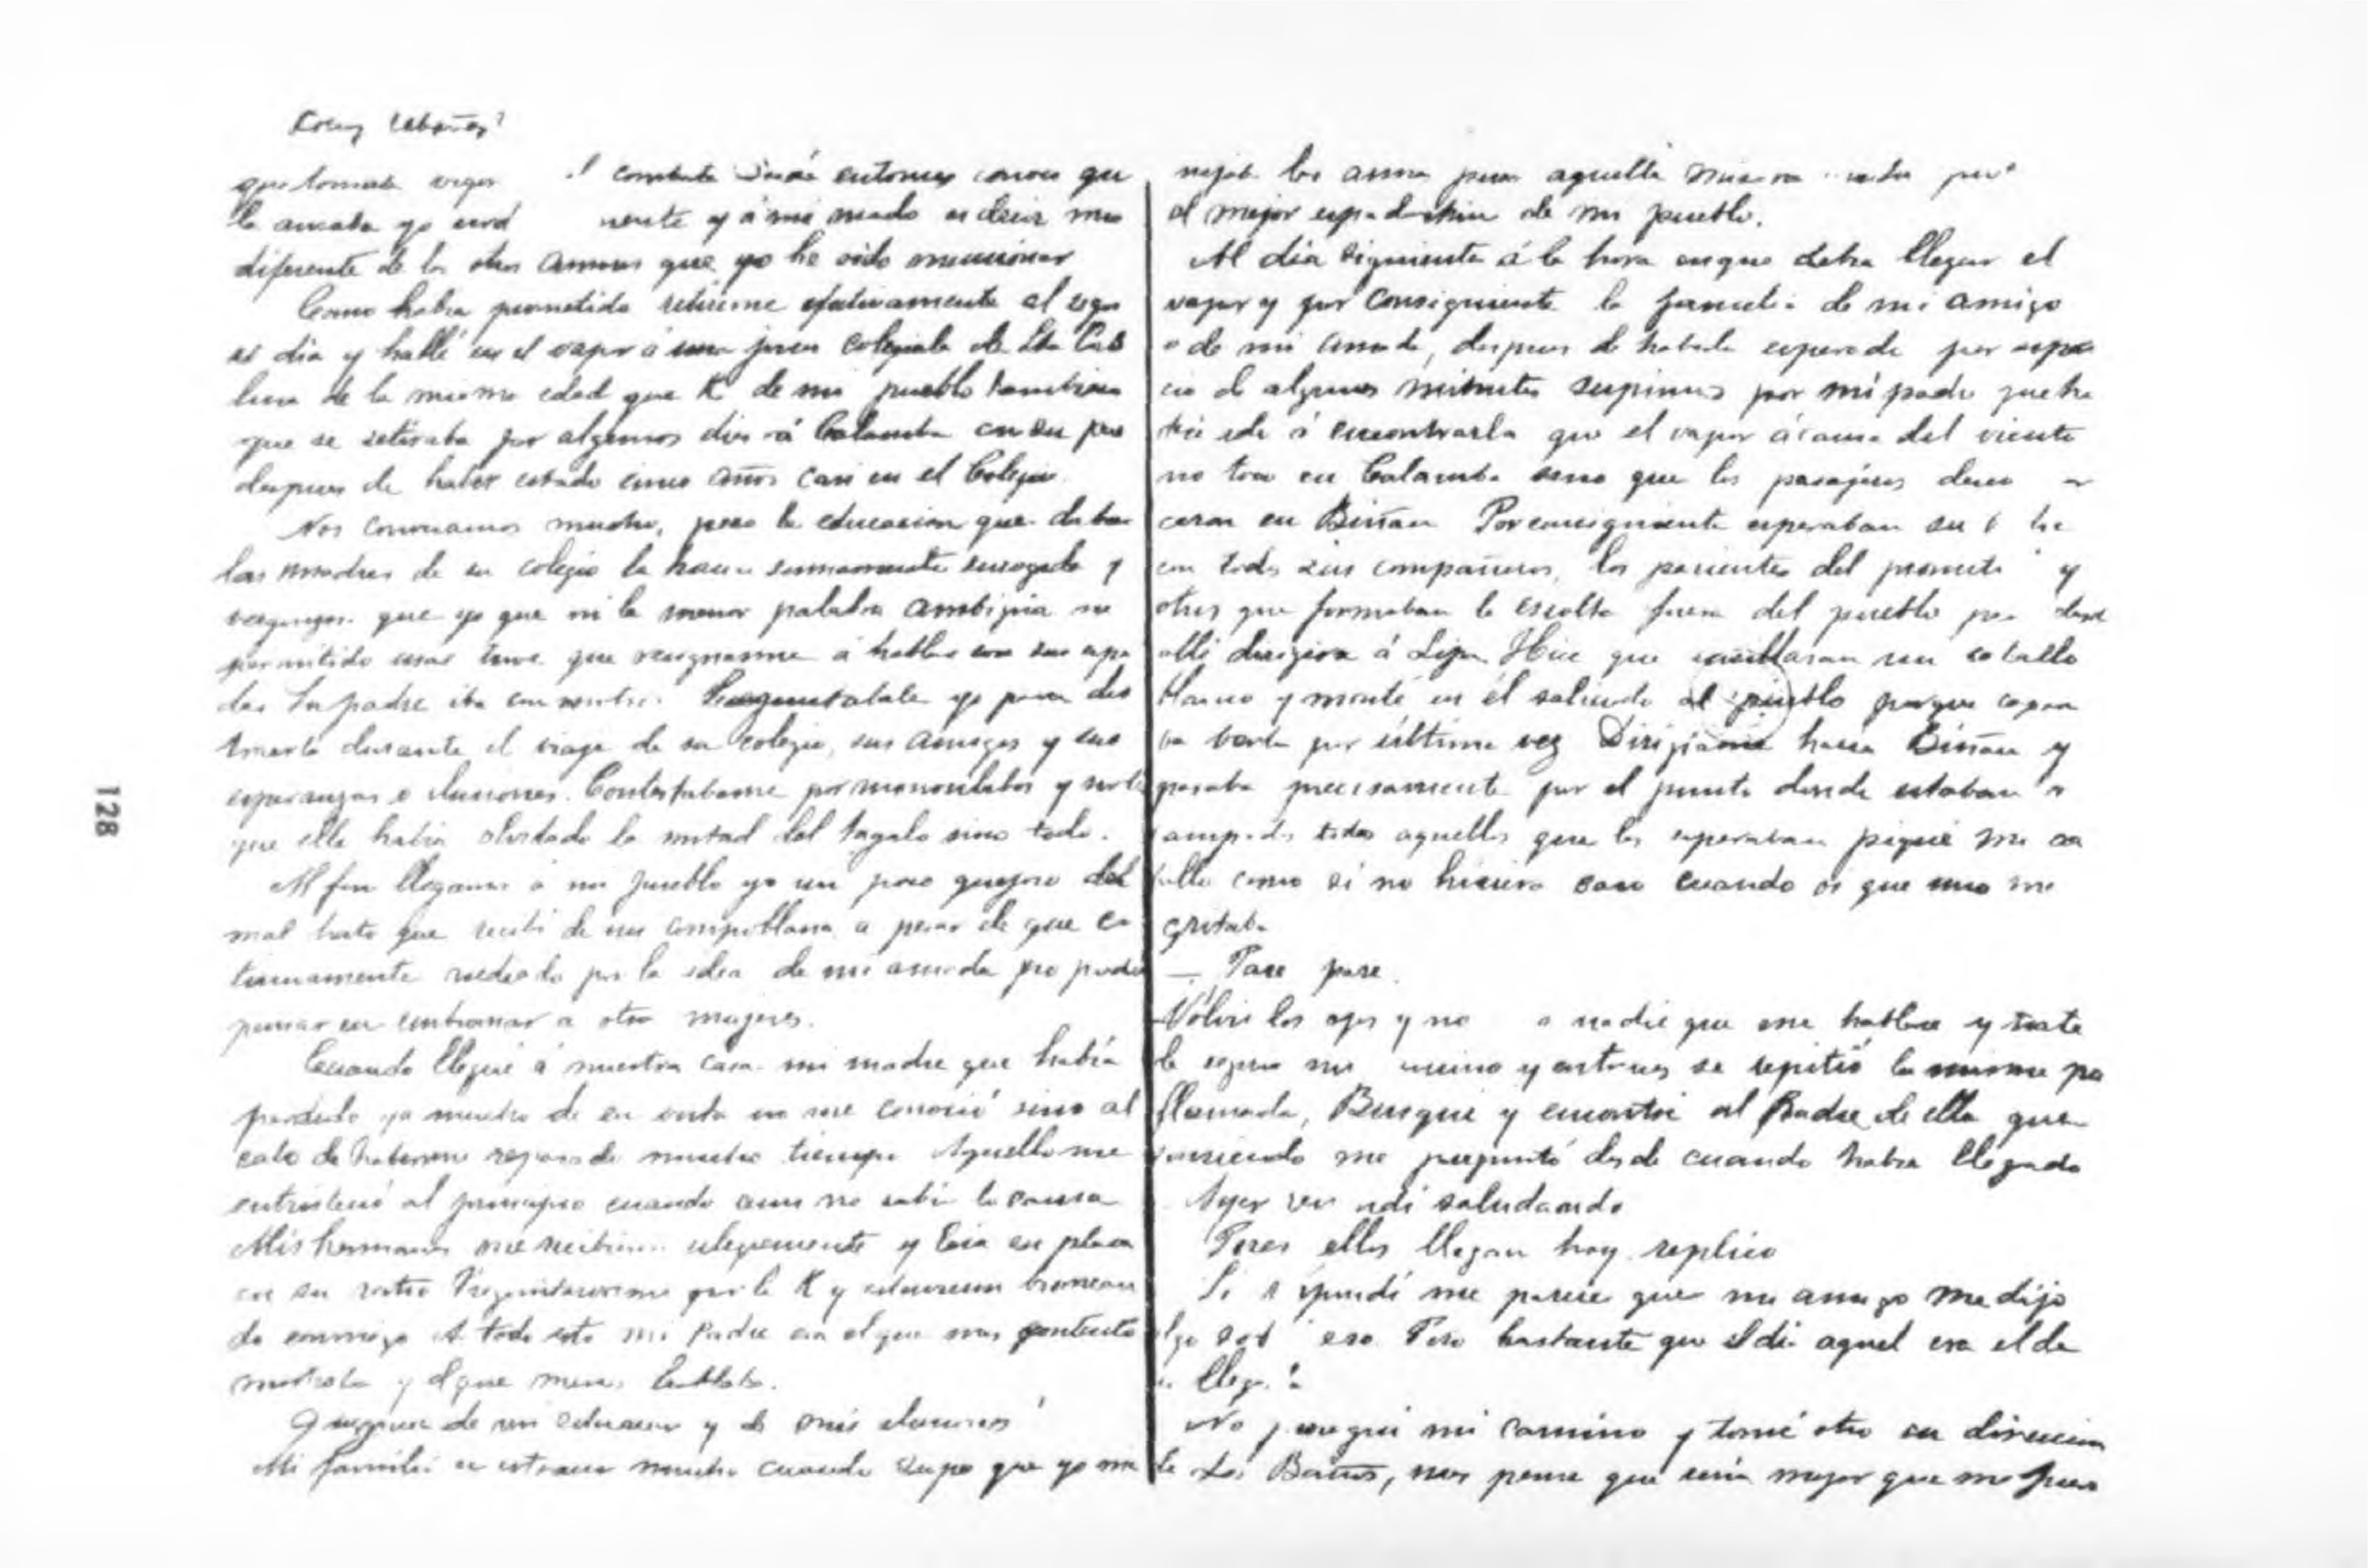 que tomaba
la amaba yo verd nente y á mi modo es decir muy
diferente de los otros amores que yo he oido mencionar
Como habia prometido retiréme efectivamente al segu
el dia y hallé en el vapor á una joven colegiala de Sta Cata
lina de la misma edad que K de mi pueblo tambien
que se retiraba por algunos dias á Calamba con su pa
despues de haber estado cinco años casi en el Colegio.
Nos conociamos mucho, pero la educacion que daban
las madres de su colegio la hacia sumamente y
que yo que ni la menor palabra ambigua
permitido usar tuve que resignarme á hablar con sus espal
das Su padre iba con nosotros. Preguntabale yo para dis
traerla durante el viaje de su colegio, sus amigas y sus
esperanzas e ilusiones. Contestabame por monosilabos y noté
que ella habia olvidado la mitad del tagalo sino todo.
Al fin llegamos á mi pueblo yo un poco quejoso del
mal trato que recibi de mi compoblana, a pesar de que con
tinuamente rodeado por la idea de mi amada no podia
pensar en otras mujeres.
Cuando llegué á nuestra casa mi madre que habia
perdido ya mucho de su vista no me conoció sino al
cabo de haberme mucho tiempo Aquello me
entristeció al principio cuando aun no sabia la causa
Mis hermanas me recibieron alegremente y leia su placer
en su rostro Preguntaronme por la K y estuvieron bromean
do conmigo A todo esto mi Padre era el que mas contento
mostraba y el que menos hablaba.
de mi educacion y de mis ilusiones
Mi familia se estrañó mucho cuando supo que yo ma
nejaba las armas pues aquella misma
al mejor espadachin de mi pueblo.
Al dia siguiente á la hora en que debia llegar el
vapor y por consiguiente la familia de mi amigo
o de mi amada, despues de haberla esperado por espa
cio de algunos minutos supimos por mi padre que ha
bia ido á encontrarla que el vapor á causa del viento
no tocó en Calamba sino que los pasajeros
caron en Biñan Por consiguiente esperaban su
con todos sus compañeros, los parientes del y
otros que formaban la escolta fuera del pueblo para desde
alli dirigirse á Lipa. Hice que ensillaran un caballo
blanco y monté en él saliendo al pueblo porque
ba verla por última vez Dirigiame hacia Biñan y
pasaba precisamente por el punto donde estaban a
campados todos aquellos que los esperaban piqué mi ca
ballo como si no hiciera caso cuando oi que uno me
gritaba
— Pare pare.
Volvi los ojos y no a nadie que me hablase y traté
de seguir mi camino y entonces se repitió la misma
llamada, Busqué y encontré al Padre de ella que
sonriendo me preguntó desde cuando habia llegado
Ayer saludando
Pues ellos llegan hoy replicó
Si respondi me parece que mi amigo me dijo
algo sob eso Pero bastante que el dia aquel era el de
No proseguí mi camino y tomé otro en direccion
de Los Baños, mas pensé que seria mejor que me fuera
128